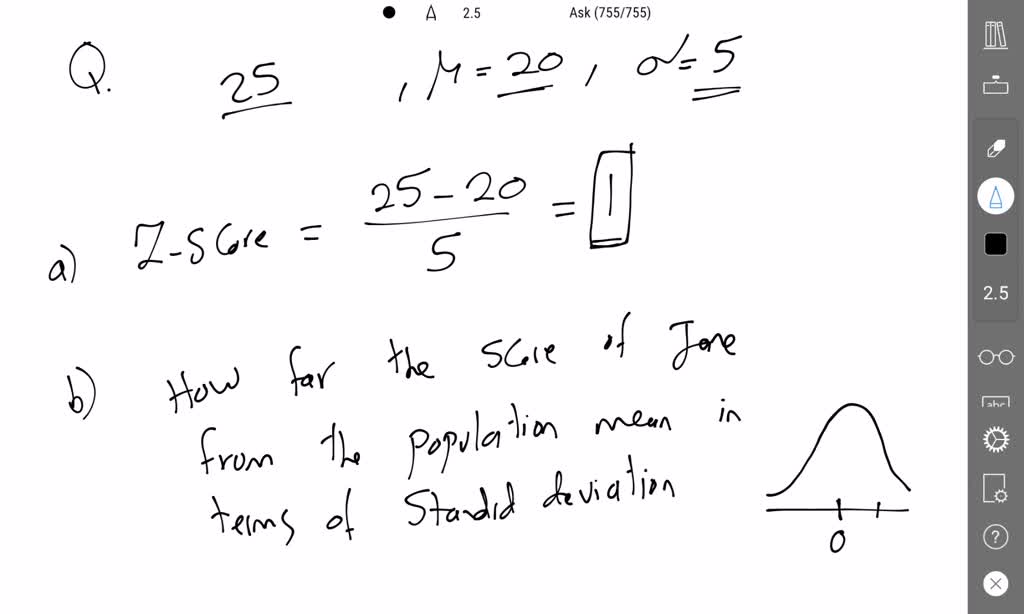 A 2.5 Ask (755/755)
Q. 25 , μ = 20 , σ = 5
a) Z-score = 25 - 20 / 5 = 1
b) How far the score of Jane
from the population mean in
terms of Standrd deviation
0
2.5
abc
?